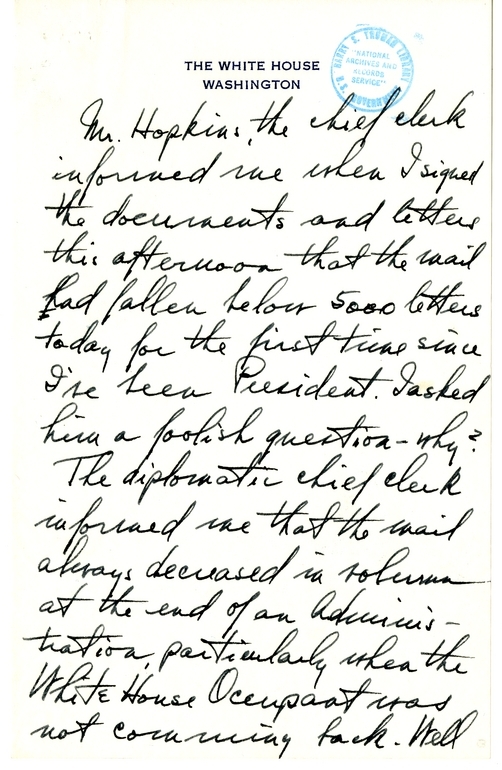 THE WHITE HOUSE
WASHINGTON
HARRY S. TRUMAN LIBRARY
"NATIONAL
ARCHIVES AND
RECORDS
SERVICE"
U.S. GOVERNMENT
Mr. Hopkins, the chief clerk
informed me when I signed
the documents and letters
this afternoon that the mail
had fallen below 5000 letters
today for the first time since
I've been President. I asked
him a foolish question - why?
The diplomatic chief clerk
informed me that the mail
always decreased in volumn
at the end of an Adminis-
tration, particularly when the
White House Occupant was
not comming back. Well